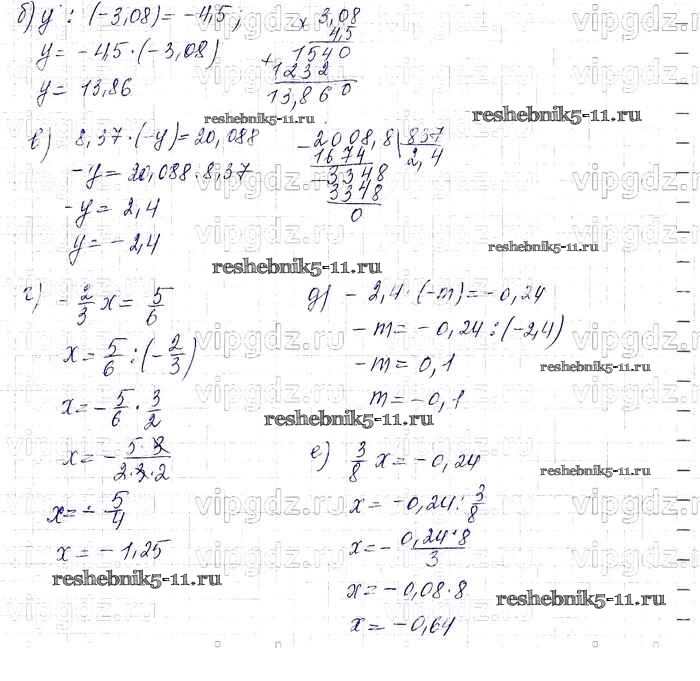 б) y : (-3,08) = -4,5;
y = -4,5 · (-3,08)
y = 13,86
× 3,08
4,5
+ 1540
1232
13,860
reshebnik5-11.ru
reshebnik5-11.ru
в) 8,37 · (-y) = 20,088
-y = 20,088 : 8,37
-y = 2,4
y = -2,4
- 2008,8 | 837
1674 2,4
- 3348
3348
0
reshebnik5-11.ru
reshebnik5-11.ru
г) - 2/3 x = 5/6
x = 5/6 : (- 2/3)
x = - 5/6 · 3/2
x = - 5·3/2·3·2
x = - 5/4
x = -1,25
reshebnik5-11.ru
д) -2,4 · (-m) = -0,24
-m = -0,24 : (-2,4)
-m = 0,1
m = -0,1
reshebnik5-11.ru
reshebnik5-11.ru
е) 3/8 x = -0,24
x = -0,24 : 3/8
x = - 0,24·8/3
x = -0,08·8
x = -0,64
reshebnik5-11.ru
reshebnik5-11.ru
vipgdz.ru
vipgdz.ru
vipgdz.ru
vipgdz.ru
vipgdz.ru
vipgdz.ru
vipgdz.ru
vipgdz.ru
vipgdz.ru
vipgdz.ru